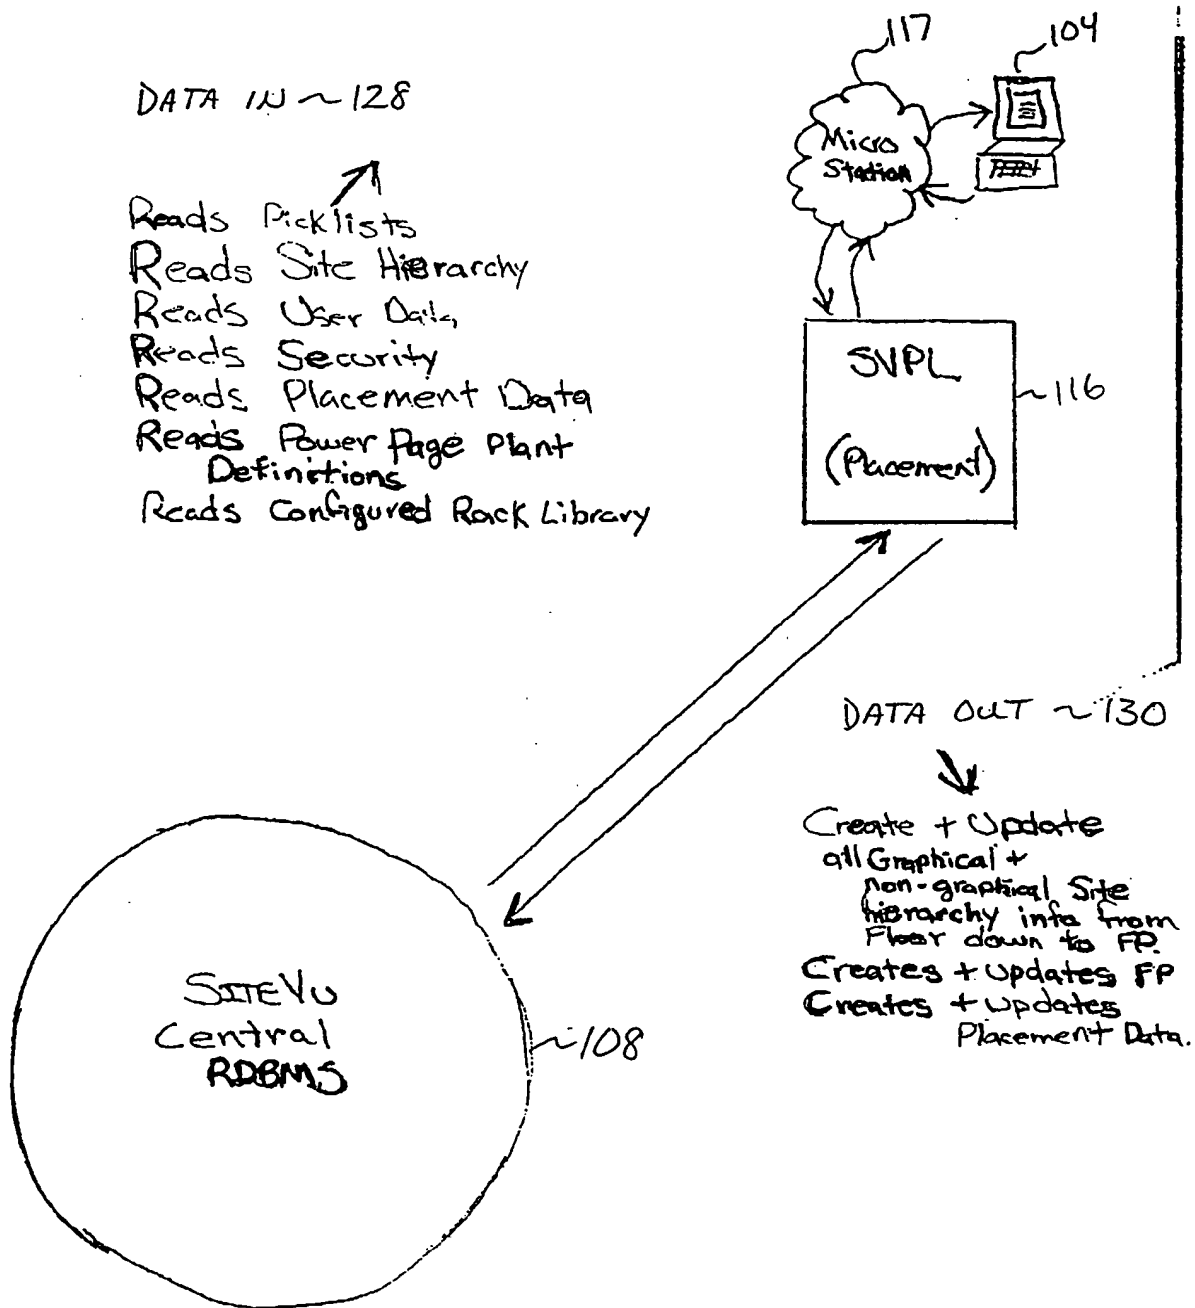 117
104
DATA IN ~ 128
Micro
Station
Reads Picklists
Reads Site Hierarchy
Reads User Data
Reads Security
Reads Placement Data
Reads Power Page Plant
Definitions
Reads Configured Rack Library
SVPL
(Placement)
~116
DATA OUT ~ 130
Create + Update
all Graphical +
non-graphical Site
hierarchy info from
Floor down to FP.
Creates + Updates FP
Creates + Updates
Placement Data.
SITEVU
Central
RDBMS
~108